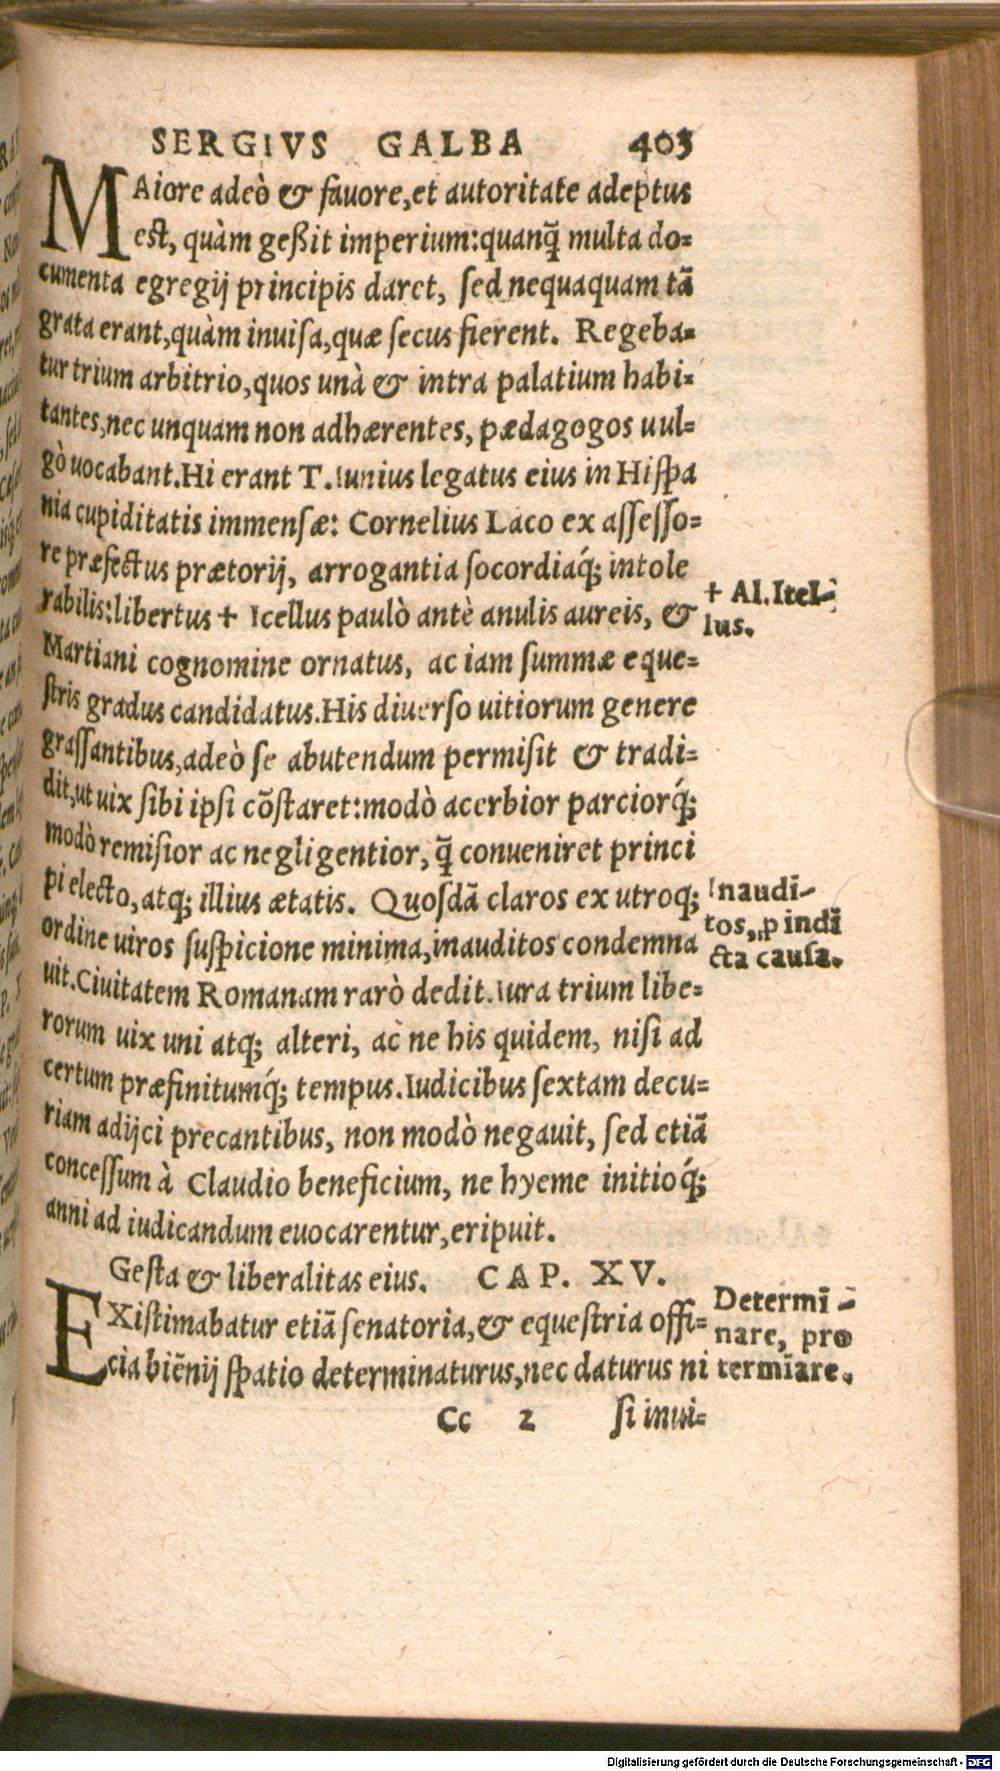 SERGIVS GALBA 403
MAiore adeò & fauore, et autoritate adeptus
est, quàm geßit imperium: quanq̃ multa do=
cumenta egregij principis daret, sed nequaquam tã
grata erant, quàm inuisa, quæ secus fierent. Regeba=
tur trium arbitrio, quos unà & intra palatium habi=
tantes, nec unquam non adhærentes, pædagogos uul=
gò uocabant. Hi erant T. Iunius legatus eius in Hispa
nia cupiditatis immensæ: Cornelius Laco ex assesso=
re præfectus prætorij, arrogantia socordiaq́; intole
rabilis: libertus + Icellus paulò antè anulis aureis, &
+ Al. Itel=
lus.
Martiani cognomine ornatus, ac iam summæ eque=
stris gradus candidatus. His diuerso uitiorum genere
grassantibus, adeò se abutendum permisit & tradi=
dit, ut uix sibi ipsi cõstaret: modò acerbior parciorq́;
modò remisior ac negligentior, q̃ conueniret princi
pi electo, atq; illius ætatis. Quosdã claros ex utroq;
ordine uiros suspicione minima, inauditos condemna
Inaudi-
tos, ,p indi
cta causa.
uit. Ciuitatem Romanam rarò dedit. Iura trium libe=
rorum uix uni atq; alteri, ac ne his quidem, nisi ad
certum præfinitumq́; tempus. Iudicibus sextam decu=
riam adijci precantibus, non modò negauit, sed etiã
concessum à Claudio beneficium, ne hyeme initioq́;
anni ad iudicandum euocarentur, eripuit.
Gesta & liberalitas eius. CAP. XV.
EXistimabatur etiã senatoria, & equestria offi=
cia biẽnij spatio determinaturus, nec daturus ni
Determi-
nare, pro
termĩare.
Cc 2 si inui=
Digitalisierung gefördert durch die Deutsche Forschungsgemeinschaft - DFG